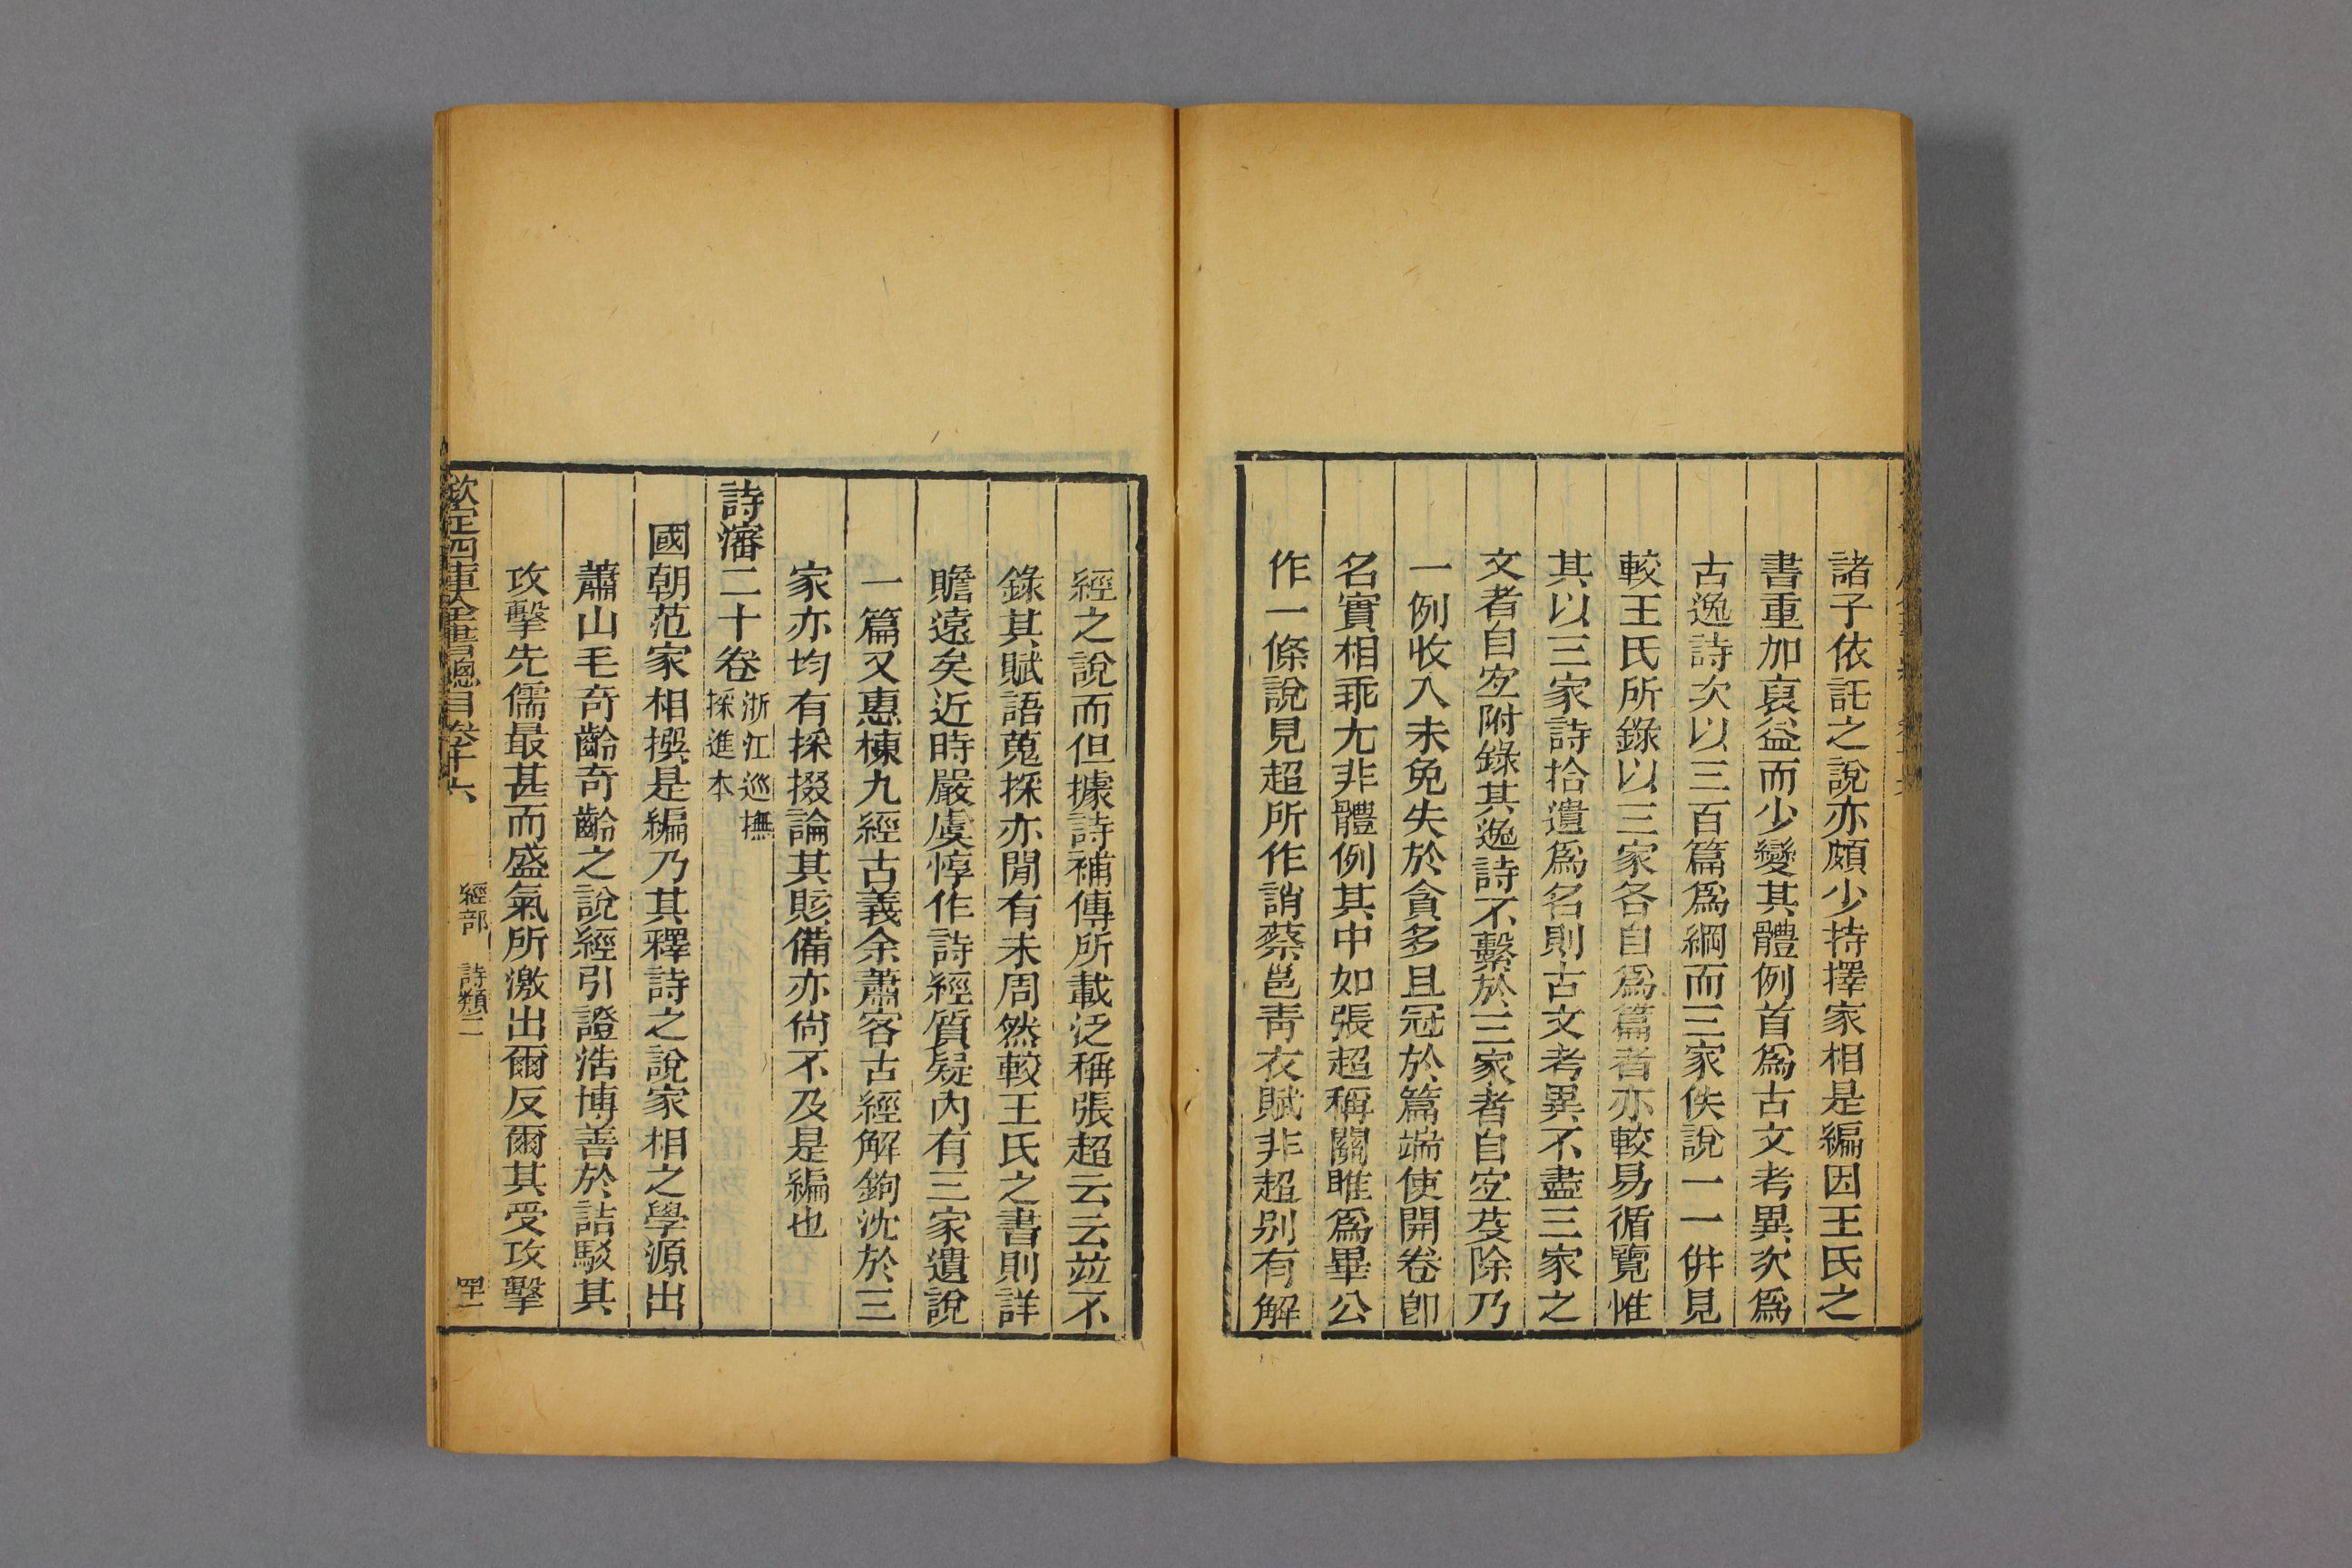 諸子依託之說亦頗少持擇家相是編因王氏之
書重加裒益而少變其體例首爲古文考異次爲
古逸詩次以三百篇爲綱而三家佚說一一併見
較王氏所錄以三家各自爲篇者亦較易循覽惟
其以三家詩拾遺爲名則古文考異不盡三家之
文者自宐附錄其逸詩不繫於三家者自宐芟除乃
一例收入未免失於貪多且冠於篇端使開卷卽
名實相乖尤非體例其中如張超稱關雎爲畢公
作一條說見超所作誚蔡邕青衣賦非超别有解
經之說而但據詩補傳所載泛稱張超云云竝不
錄其賦語蒐採亦閒有未周然較王氏之書則詳
贍遠矣近時嚴虞惇作詩經質疑內有三家遺說
一篇又惠棟九經古義余蕭客古經解鉤沈於三
家亦均有採掇論其賅備亦尙不及是編也
詩瀋二十卷 浙江巡撫
採進本
國朝范家相撰是編乃其釋詩之說家相之學源出
蕭山毛奇齡奇齡之說經引證浩博善於詰駁其
攻擊先儒最甚而盛氣所激出爾反爾其受攻擊
欽定四庫全書總目卷十六 經部 詩類二 四十一